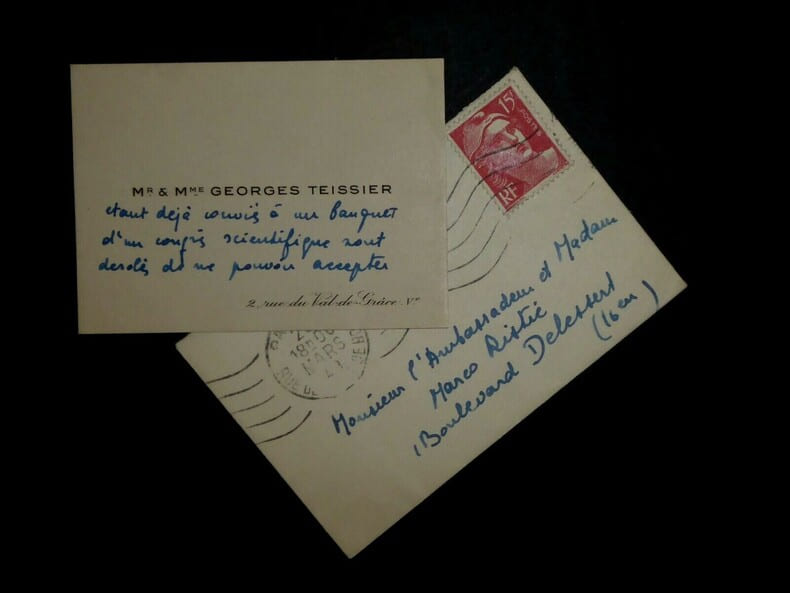 MR & MME GEORGES TEISSIER
etant dejà conviés à un banquet
d'un congrès scientifique sont
desolés de ne pouvoir accepter
2, rue du Val-de-Grâce. Ve
15F
POSTES
RF
18H
MARS
RUE DE
Monsieur l'Ambassadeur et Madame
Marco Ristić
1 Boulevard Delessert
(16em)